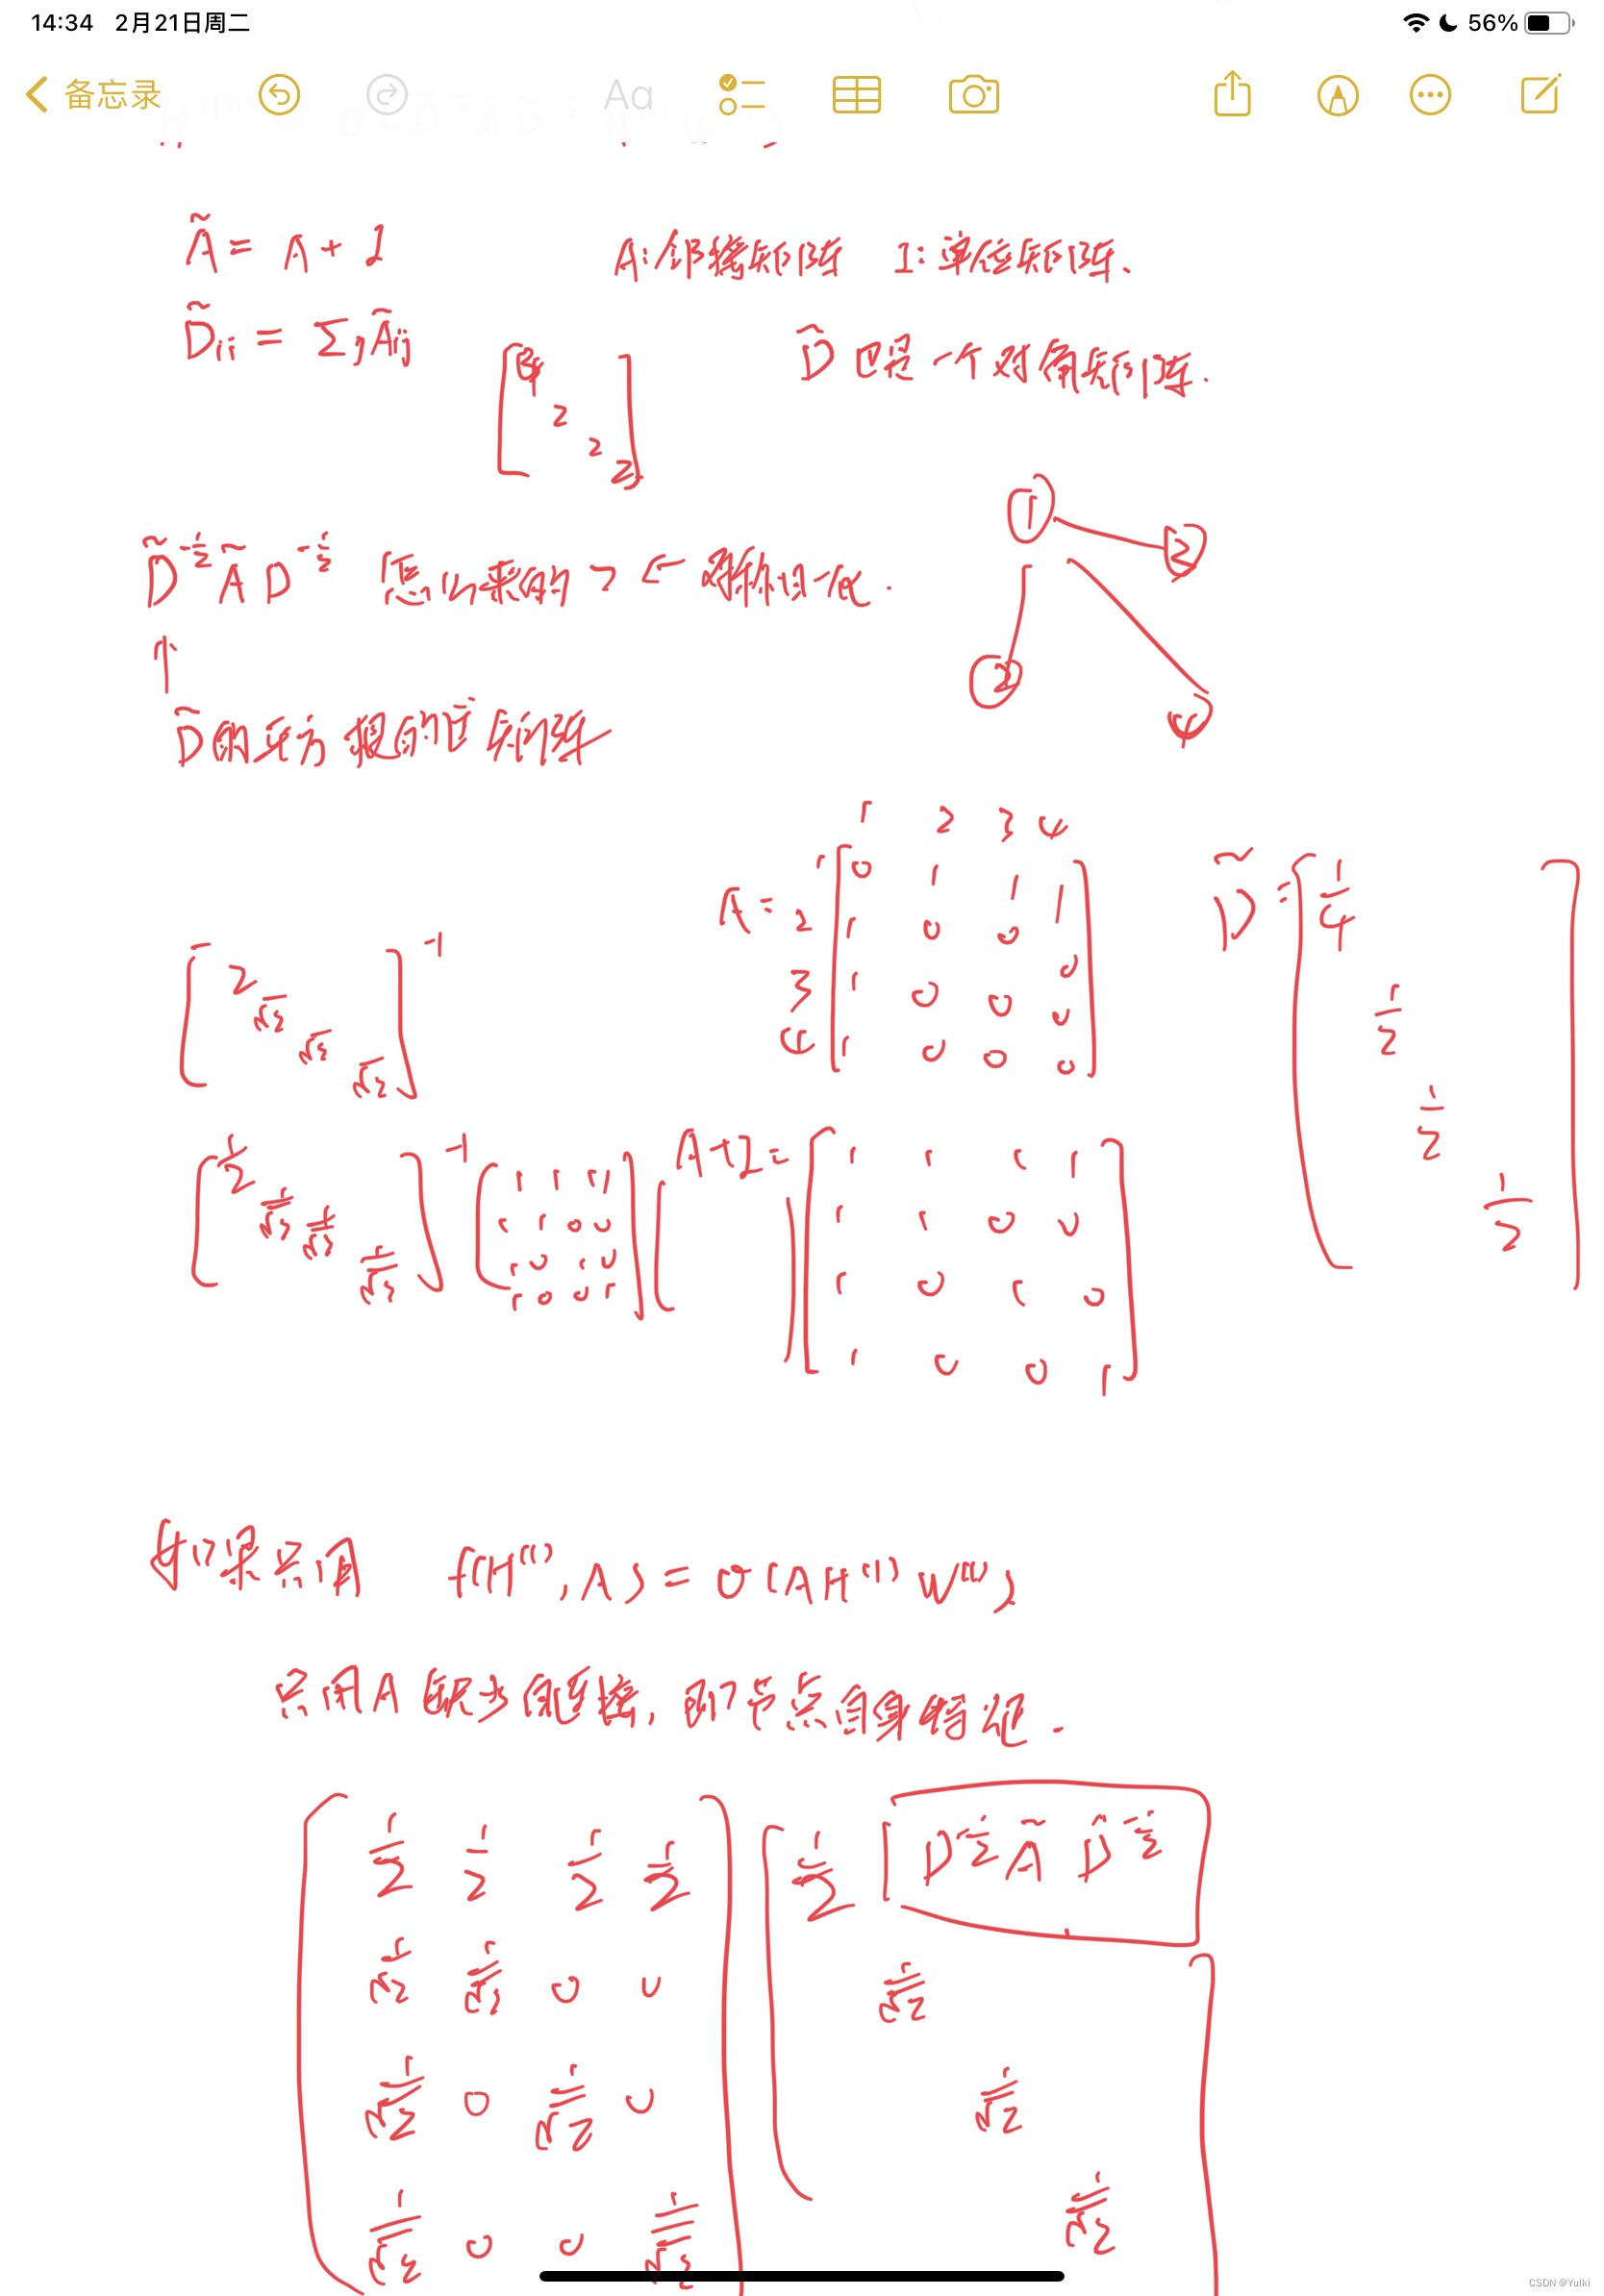 14:34 2月21日周二 56%
备忘录 Aa
Ã = A + I A:邻接矩阵 I:单位矩阵.
D̃ii = Σj Ãij D̃ 也是一个对角矩阵.
[4 2 2 2]
① ③ ② 4
D̃^-1/2 Ã D^-1/2 怎么来的? ← 对称归一化.
↑
D̃的平方根的逆矩阵
1 2 3 4
A = 1 [0 1 1 1
2 1 0 0 0
3 1 0 0 0
4 1 0 0 0]
D̃ = [1/4 1/2 1/2 1/2]
[2 √2 √2 √2]^-1
[1/2 1/√2 1/√2 1/√2]^-1 [1 1 1 1
1 1 0 0
1 0 1 0
1 0 0 1] [ ]
A+I = [1 1 1 1
1 1 0 0
1 0 1 0
1 0 0 1]
如果只用 f(H^(l), A) = σ(AH^(l) W^(l))
只用A缺少自连接, 即节点自身特征.
[1/2 1/2 1/2 1/2
1/√2 1/√2 0 0
1/√2 0 1/√2 0
1/√2 0 0 1/√2]
[1/2 1/√2 1/√2 1/√2]
D^-1/2 Ã D̃^-1/2
CSDN @Yulki